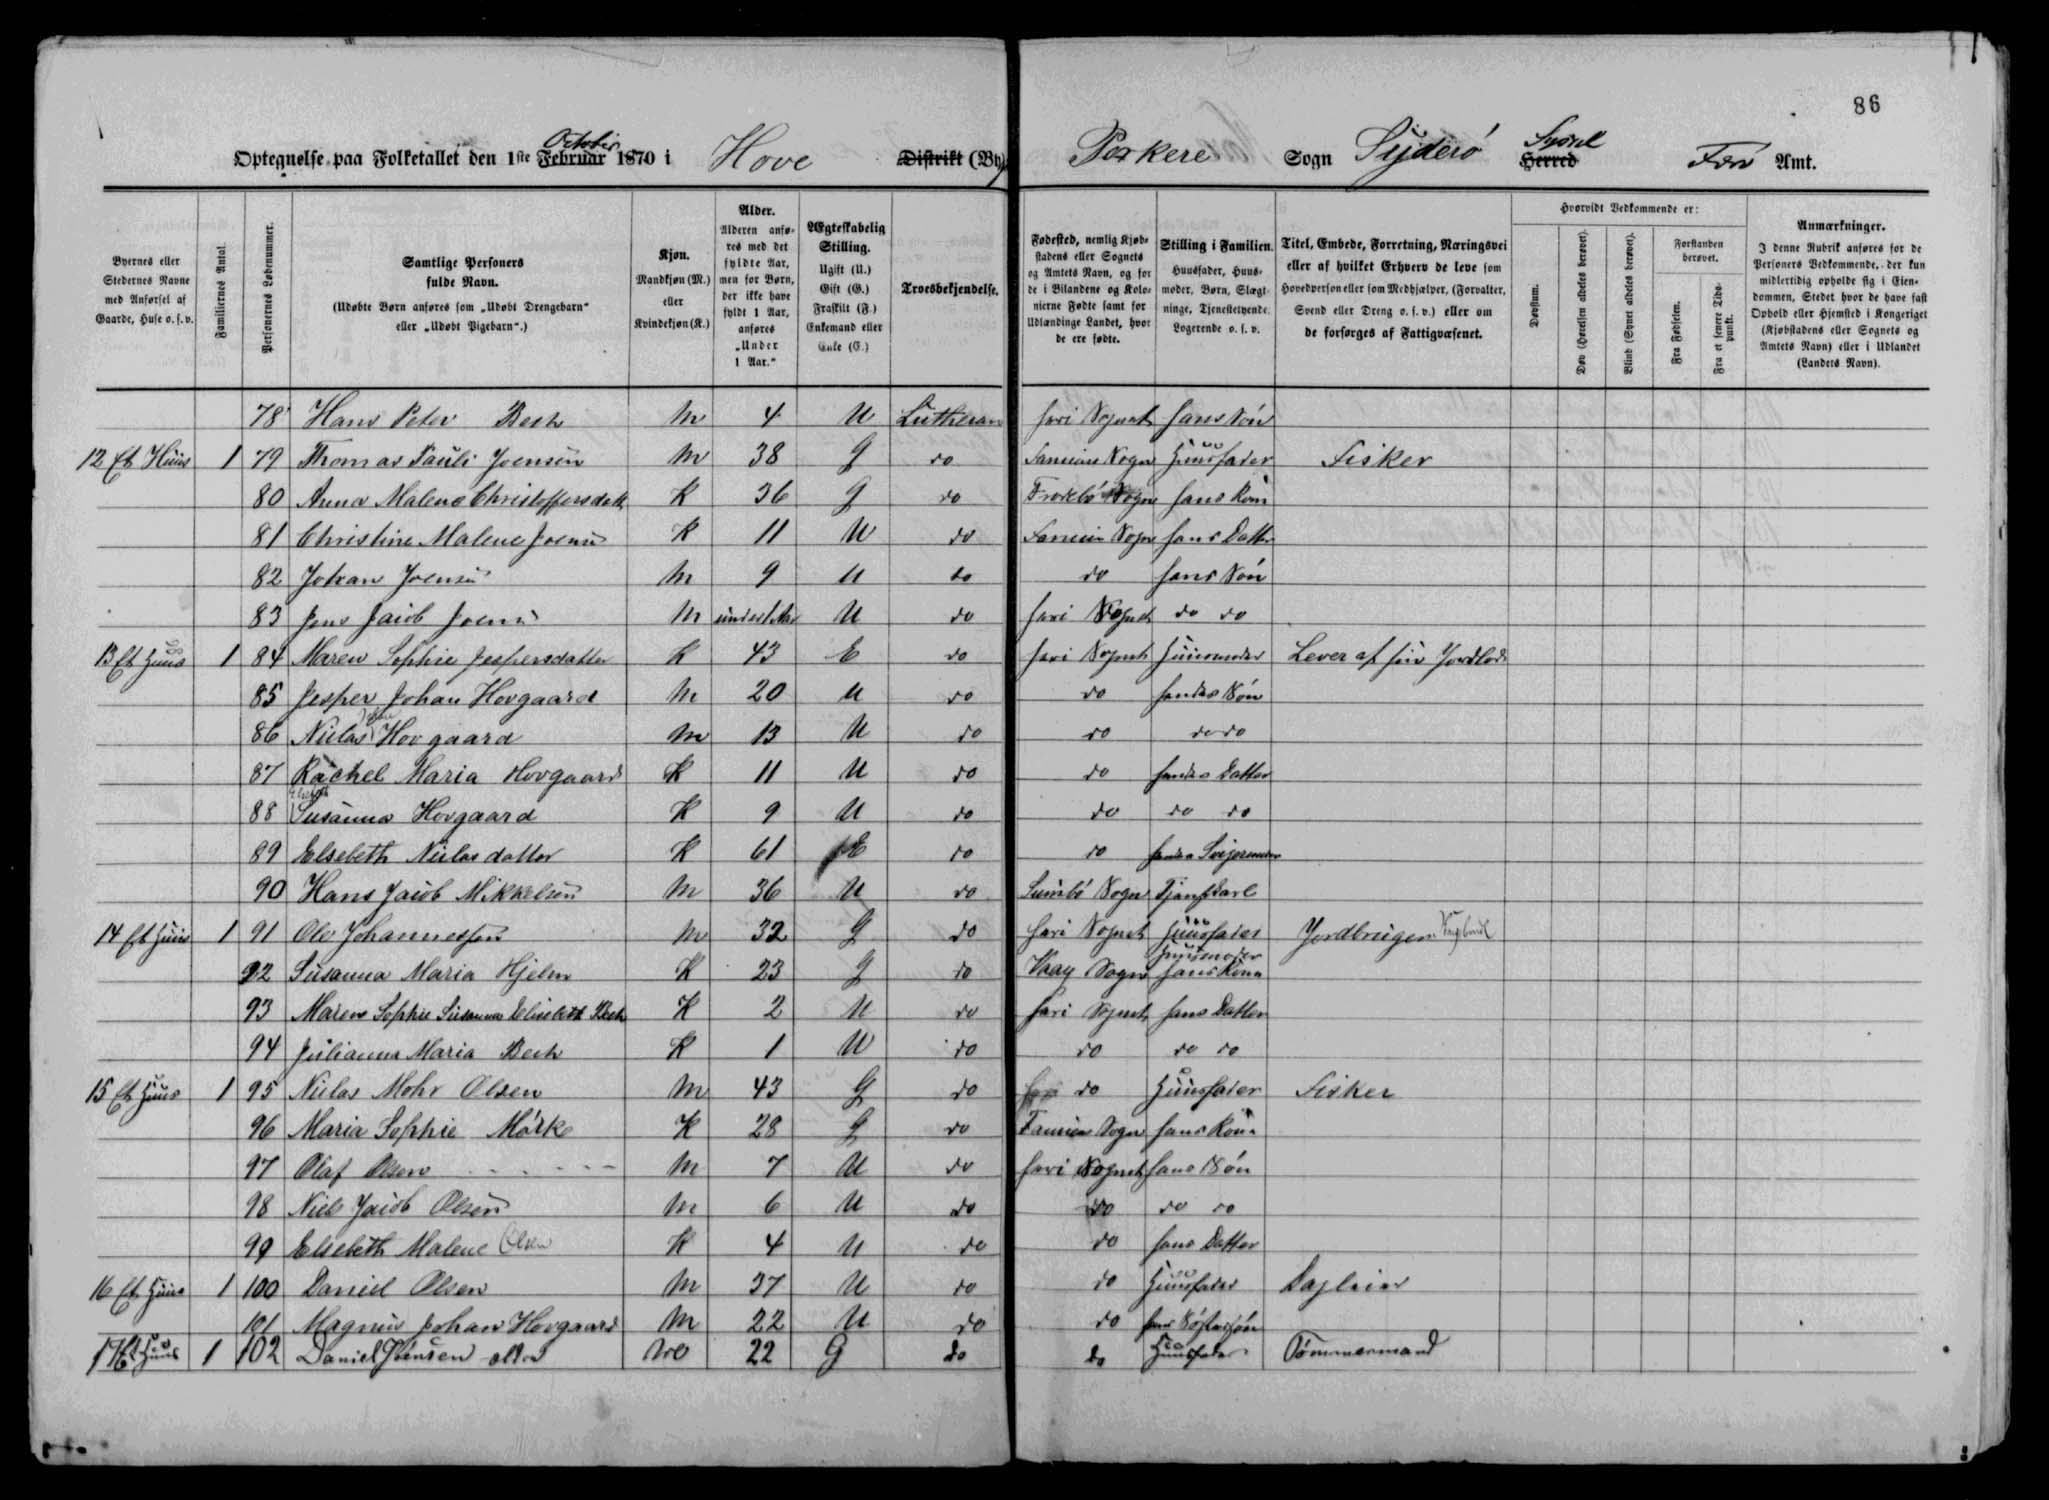 86
Optegnelse paa Folketallet den 1ste Februar October 1870 i Hove Distrikt (By) Porkere Sogn Syderö Herred Syssel Færø Amt.
Byernes eller Stedernes Navne med Anførsel af Gaarde, Huse o. s. v.
Familiernes Antal.
Personernes Løbenummer.
Samtlige Personers fulde Navn.
(Udøbte Børn anføres som „Udøbt Drengebarn“ eller „Udøbt Pigebarn“.)
Kjøn.
Mandkjøn (M.) eller Kvindekjøn (K.)
Alder.
Alderen anføres med det fyldte Aar, men for Børn, der ikke have fyldt 1 Aar, anføres „Under 1 Aar.“
Ægteskabelig Stilling.
Ugift (U.) Gift (G.) Fraskilt (F.) Enkemand eller Enke (E.)
Troesbekjendelse.
Fødested, nemlig Kjøbstadens eller Sognets og Amtets Navn, og for de i Bilandene og Kolonierne Fødte samt for Udlændinge Landet, hvor de ere fødte.
Stilling i Familien.
Huusfader, Huusmoder, Børn, Slægtninge, Tjenestetyende, Logerende o. s. v.
Titel, Embede, Forretning, Næringsvei eller af hvilket Erhverv de leve som Hovedperson eller som Medhjælper, (Forvalter, Svend eller Dreng o. s. v.) eller om de forsørges af Fattigvæsenet.
Hvorvidt Vedkommende er:
Døvstum.
Døv (Hørelsen aldeles berøvet).
Blind (Synet aldeles berøvet).
Forstanden berøvet.
Fra Fødselen.
Fra et senere Tidspunkt.
Anmærkninger.
I denne Rubrik anføres for de Personers Vedkommende, der kun midlertidig opholde sig i Eiendommen, Stedet hvor de have fast Ophold eller Hjemsted i Kongeriget (Kjøbstadens eller Sognets og Amtets Navn) eller i Udlandet (Landets Navn).
78 Hans Peter Bech M 4 U Lutheran heri Sognet hans Søn
12 Et Huus 1 79 Thomas Pauli Joensen M 38 G do Famien Sogn Huusfader Fisker
80 Anna Malene Christoffersdatt K 36 G do Frodebö Sogn hans Kone
81 Christine Malene Joensen K 11 U do Famien Sogn hans Datter
82 Johan Joensen M 9 U do do hans Søn
83 Jens Jacob Joensen M under 1 Aar U do heri Sognet do do
13 Et Huus 1 84 Maren Sophie Jespersdatter K 43 E do heri Sognet Huusmoder Lever af sin Jordlod
85 Jesper Johan Hovgaard M 20 U do do hendes Søn
86 Niclas Hovgaard M 13 U do do do do
87 Rachel Maria Hovgaard K 11 U do do hendes Datter
88 Elsebeth Susanna Hovgaard K 9 U do do do do
89 Elsebeth Niclasdatter K 61 E do do hendes Svigermoder
90 Hans Jacob Mikkelsen M 36 U do Sumbö Sogn Tjenestkarl
14 Et Huus 1 91 Ole Johannessen M 32 G do heri Sognet Huusfader Jordbruger
92 Susanna Maria Hjelm K 23 G do Vaag Sogn Huusmoder hans Kone
93 Maren Sophie Susanna Elisabeth Bech K 2 U do heri Sognet hans Datter
94 Julianna Maria Bech K 1 U do do do do
15 Et Huus 1 95 Niclas Mohr Olsen M 43 G do do Huusfader Fisker
96 Maria Sophie Mörke K 28 G do Famien Sogn hans Kone
97 Olaf Olsen M 7 U do heri Sognet hans Søn
98 Niels Jacob Olsen M 6 U do do do do
99 Elsebeth Malene Olsen K 4 U do do hans Datter
16 Et Huus 1 100 Daniel Olsen M 37 U do do Huusfader Dagleier
101 Magnus Johan Hovgaard M 22 U do do hans Søstersøn
17 Et Huus 1 102 Daniel Hansen M 22 G do do Huusfader Tømmermand